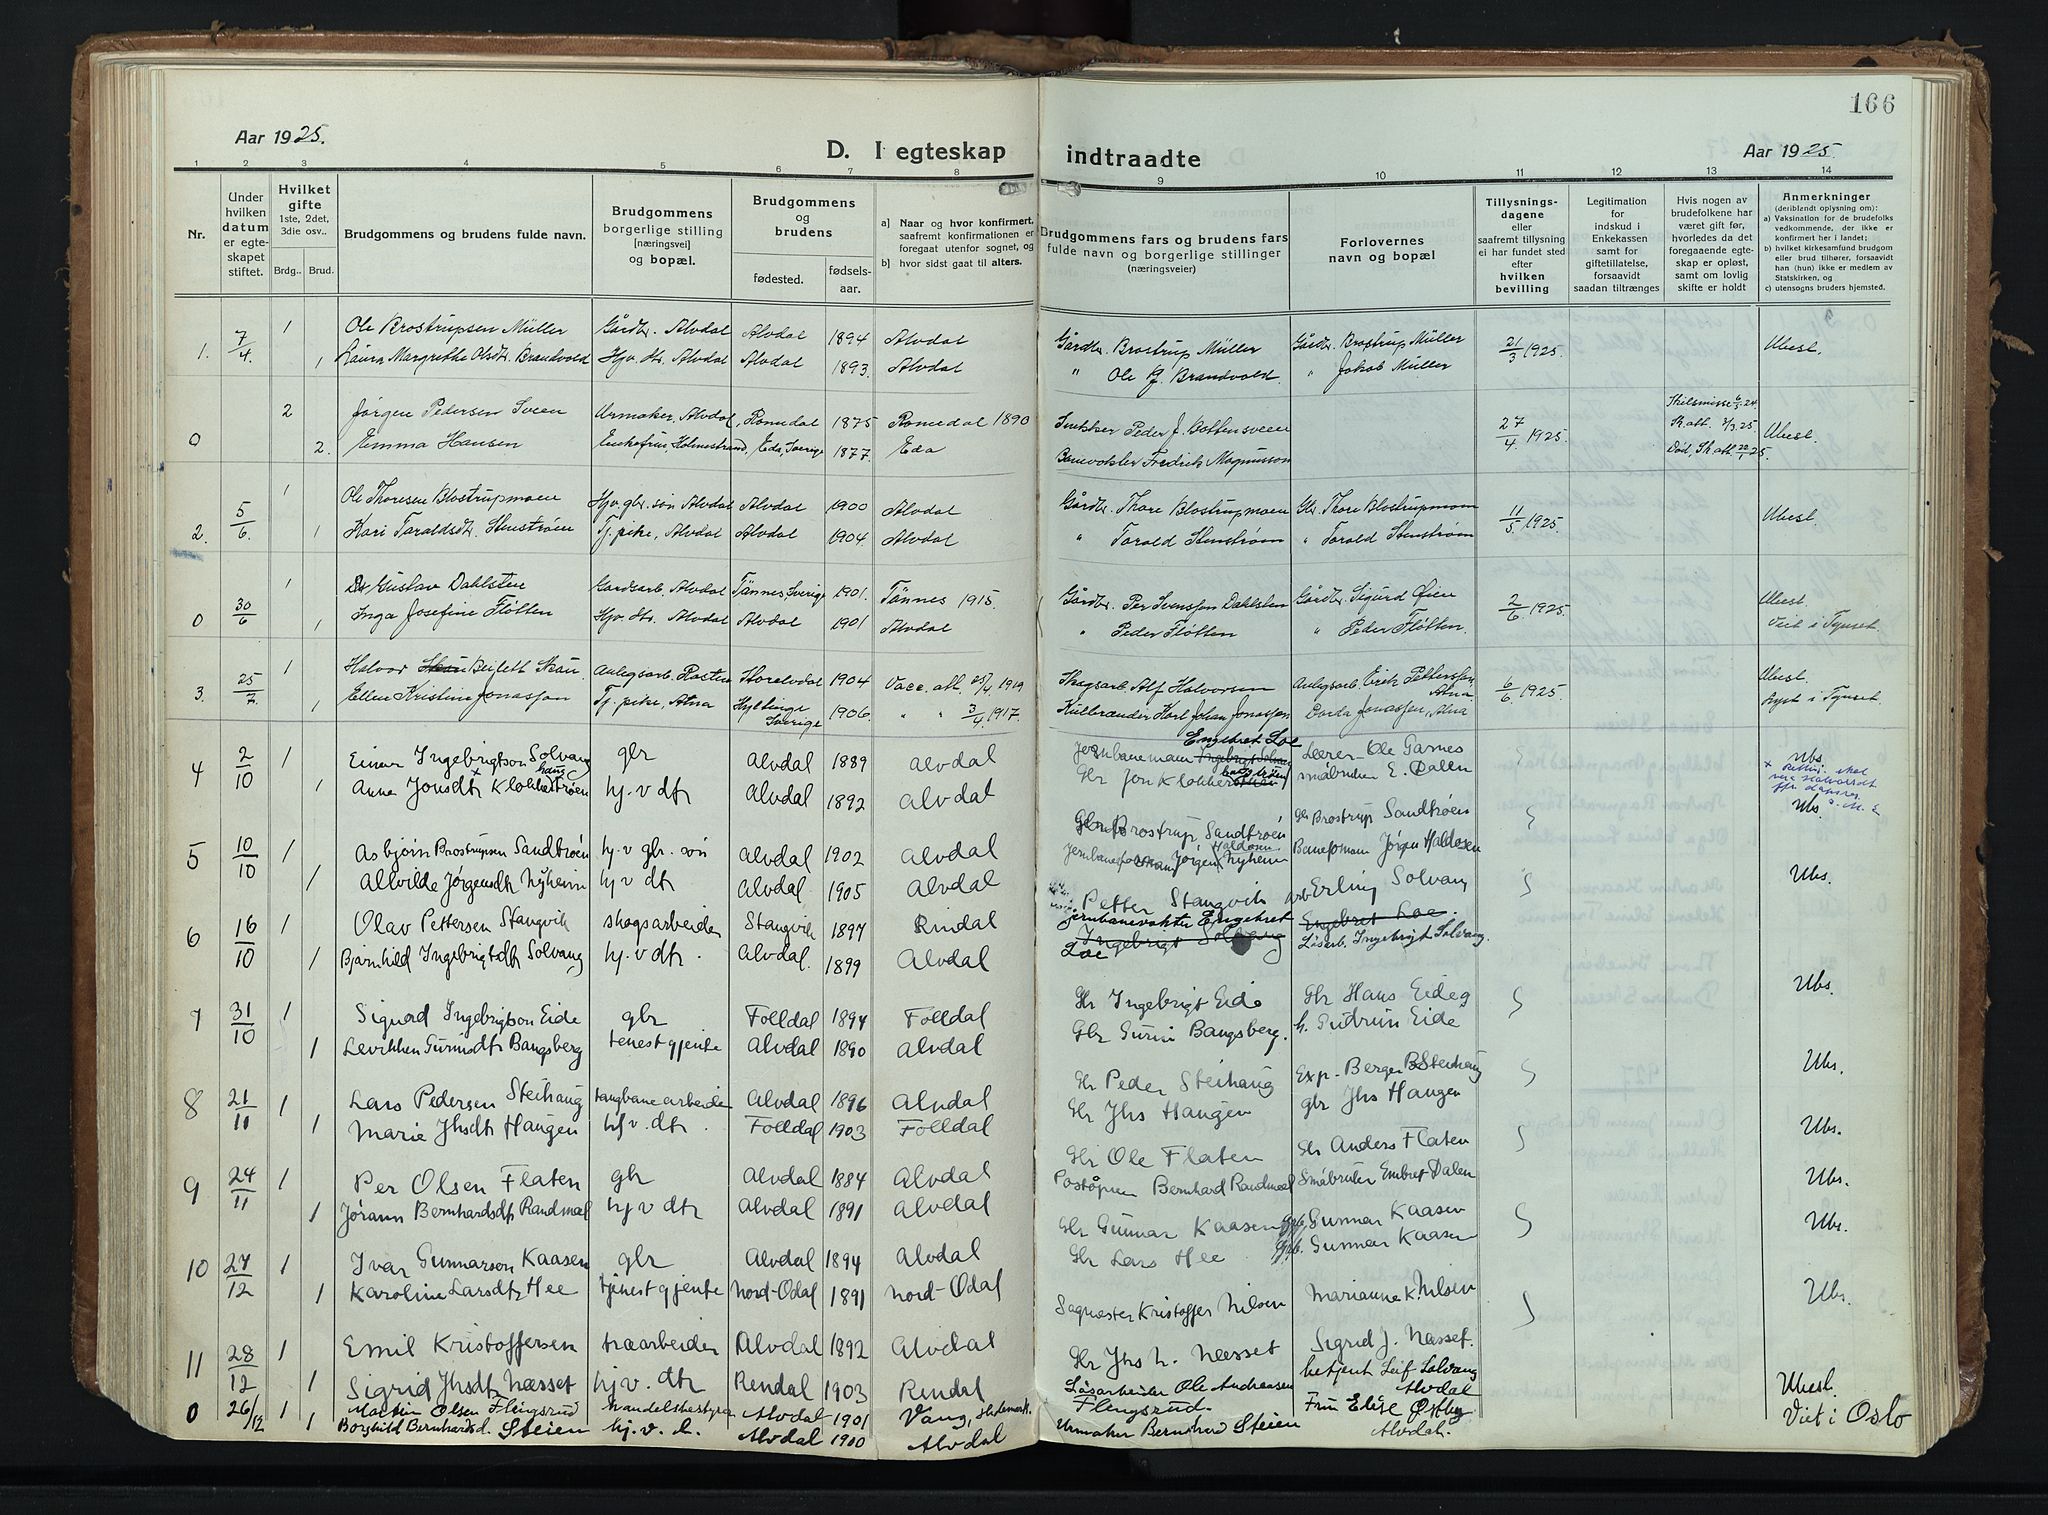 166
Aar 1925.
D. I egteskap indtraadte
Aar 1925.
1 2 3 4 5 6 7 8 9 10 11 12 13 14
Nr.
Under hvilken datum er egteskapet stiftet.
Hvilket gifte 1ste, 2det, 3die osv..
Brdg.. Brud.
Brudgommens og brudens fulde navn.
Brudgommens borgerlige stilling [næringsvei] og bopæl.
Brudgommens og brudens
fødested. fødsels-aar.
a) Naar og hvor konfirmert, saafremt konfirmationen er foregaat utenfor sognet, og
b) hvor sidst gaat til alters.
Brudgommens fars og brudens fars fulde navn og borgerlige stillinger (næringsveier)
Forlovernes navn og bopæl
Tillysnings-dagene eller saafremt tillysning ei har fundet sted efter hvilken bevilling
Legitimation for indskud i Enkekassen samt for giftetillatelse, forsaavidt saadan tiltrænges
Hvis nogen av brudefolkene har været gift før, hvorledes da det foregaaende egteskap er opløst, samt om lovlig skifte er holdt
Anmerkninger (deriblandt oplysning om):
a) Vaksination for de brudefolks vedkommende, der ikke er konfirmert her i landet;
b) hvilket kirkesamfund brudgom eller brud tilhører, forsaavidt han (hun) ikke er medlem av Statskirken, og
c) utensogns bruders hjemsted.
1. 7/4 1 Ole Brostrupsen Müller Gårdbr. Alvdal Alvdal 1894 Alvdal Gårdbr. Brostrup Müller Gårdbr. Brostrup Müller 21/3 1925. Ubesl.
1 Laura Margrethe Olsdtr. Brandvold Hjv. dtr. Alvdal Alvdal 1893. Alvdal " Ole J. Brandvold. " Jakob Müller
0 2 Jørgen Pedersen Sveen Urmaker, Alvdal, Romedal 1875 Romedal 1890 Snekker Peder J. Bottensveen 27/4 1925. Skilsmisse 6/5 24. Sk.att. 2/3 25 Ubesl.
2. Emma Hansen Enkefrue, Holmestrand, Eda, Sverige 1877. Eda Banevokter Fredrik Magnusson Død, Sk.att 20/1 25.
2. 5/6 1 Ole Thoresen Blostrupmoen Hjv. gbr. søn Alvdal Alvdal 1900 Alvdal Gårdbr. Thore Blostrupmoen Gbr. Thore Blostrupmoen 11/5 1925. Ubesl.
1 Kari Taraldsdtr. Stenstrøm Tj. pike, Alvdal Alvdal 1904. Alvdal " Tarald Stenstrøm " Tarald Stenstrøm
0 30/6 1 Gustav Dahlsten Gardsarb. Alvdal Tännes, Sverige 1901. Tännes 1915. Gårdbr. Per Svensson Dahlsten Gårdbr. Sigurd Øien 2/6 1925. Ubesl.
1 Inga Josefine Fløtten Hjv. dtr. Alvdal Alvdal 1901 Alvdal " Peder Fløtten " Peder Fløtten. Viet i Tynset.
3. 25/7 1 Halvor Berflett Skau. Anlegsarb. Rasten Storelvdal 1904 Vacc. att. 25/4 1919 Skogsarb. Alf Halvorsen Anlegsarb. Erik Pettersson, Atna 6/6 1925. Ubesl.
1 Ellen Kristine Jonasson Tj. pike, Atna Hyltinge Sverige 1906. " " 3/4 1917. Kulbrænder Karl Johan Jonasson Dorda Jonassen, Atna Lyst i Tynset.
4 2/10 1 Einar Ingebrigtson Solvang gbr Alvdal 1889 Alvdal Jernbanemann Engebret Loe Lærer Ole Garnes Ubs.
1 Anne Jonsdtr Klokkerhaug hj. v dtr Alvdal 1892 Alvdal Gbr Jon Klokkerhaug småbruker E. Dalen
5 10/10 1 Asbjørn Brostrupsen Sandtrøen hj. v gbr. søn Alvdal 1902 Alvdal Gbr Brostrup Sandtrøen Gbr Brostrup Sandtrøen Ubs.
1 Allvilde Jørgensdtr Nyheim hj v dtr Alvdal 1905 Alvdal Jernbaneformann Jørgen Haldosen Nyheim Baneformann Jørgen Haldosen
6 16/10 1 Olav Pettersen Stangvik skogsarbeider Stangvik 1897 Rindal Petter Stangvik arb. Erling Solvang Ubs.
1 Bjørnhild Ingebrigtsdtr Solvang hj. v dtr. Alvdal. 1899 Alvdal jernbanevakter Engebret Loe Løsarb. Ingebrigt Solvang.
7 31/10 1 Sigurd Ingebrigtson Eide gbr Folldal 1894 Folldal Gbr Ingebrigt Eide Gbr Hans Eideg Ubs.
1 Levikken Gurinsdtr Bangsberg tenestgjente Alvdal 1890 Alvdal Gbr Gurin Bangsberg. h. Gudrun Eide
8 21/11 1 Lars Pedersen Steihaug taugbanearbeider Alvdal 1896 Alvdal Gbr Peder Steihaug Exp. Berger B Steihaug Ubs.
1 Marie Jhsdtr Haugen hj v. dtr. Folldal 1903 Folldal Gbr Jhs Haugen gbr Jhs Haugen
9 24/11 1 Per Olsen Flaten gbr Alvdal 1884 Alvdal Gbr Ole Flaten Gbr Anders Flaten Ubs.
1 Jørann Bernhardsdtr Randmæl hj v dtr Alvdal 1891 Alvdal Poståpner Bernhard Randmæl Småbruker Embret Dalen Ubs.
10 27/12 1 Ivar Gunnarson Kaasen gbr Alvdal 1894 Alvdal Gbr Gunnar Kaasen Gbr. Gunnar Kaasen Ubs.
1 Karoline Larsdtr Hee tjenestgjente Nord-Odal 1891 Nord-Odal Gbr Lars Hee Gbr. Gunnar Kaasen
11 28/12 1 Emil Kristoffersen træarbeider Alvdal 1892 Alvdal Sagmester Kristoffer Nilsen Marianne K. Nilsen Ubs.
1 Sigrid Jhsdtr Næsset hj v. dtr Rendal 1903 Rendal Gbr Jhs N. Næsset Sigrid J. Næsset.
0 26/12 1 Martin Olsen Flengsrud handelsbestyrer Alvdal 1901 Vang, Hedemark. Løsarbeider Ole Andreassen Flengsrud. betjent Leif Solvang Alvdal Ubesl.
1 Borghild Bernhardsd. Steien hj. v. d. Alvdal 1900 Alvdal Urmaker Bernhard Steien Fru Elise Østby Alvdal. Viet i Oslo